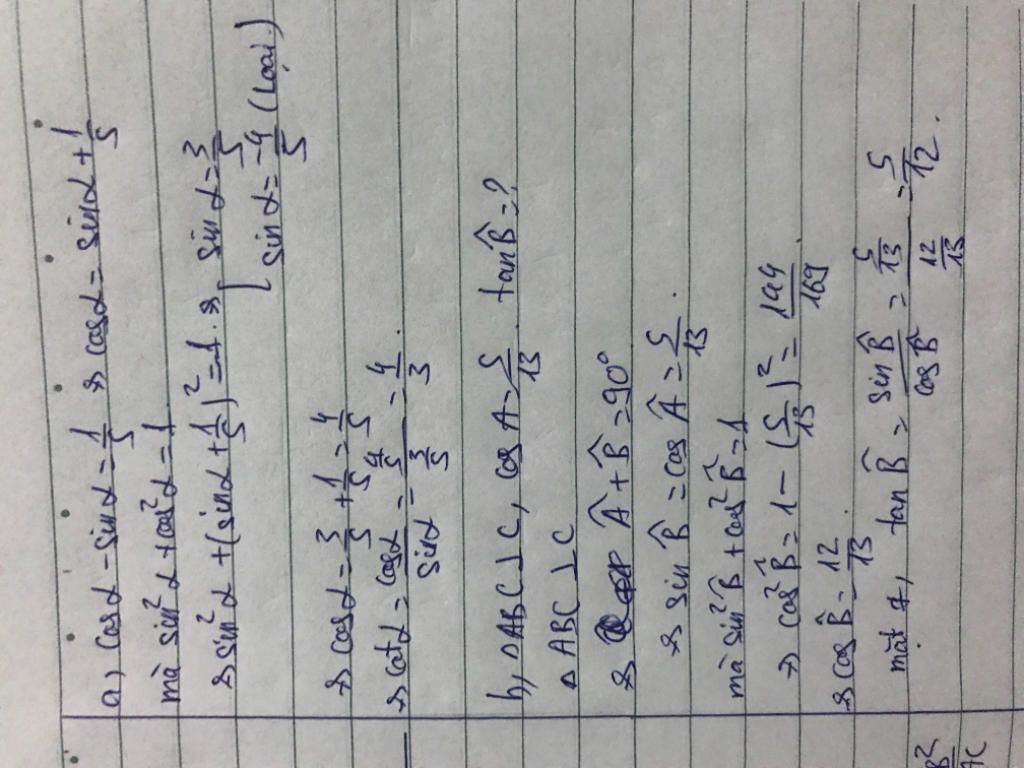 a, cosα - sinα = 1/5 => cosα = sinα + 1/5
mà sin²α + cos²α = 1
=> sin²α + (sinα + 1/5)² = 1 => [ sinα = 3/5
sinα = -4/5 (Loại)
=> cosα = 3/5 + 1/5 = 4/5
=> cotα = cosα/sinα = (4/5)/(3/5) = 4/3.
b, △ABC ⊥ C, cos A = 5/13. tan B̂ = ?
△ABC ⊥ C
=> Â + B̂ = 90°
=> sin B̂ = cos Â = 5/13.
mà sin² B̂ + cos² B̂ = 1
=> cos² B̂ = 1 - (5/13)² = 144/169
=> cos B̂ = 12/13.
mặt ≠, tan B̂ = sin B̂/cos B̂ = (5/13)/(12/13) = 5/12.